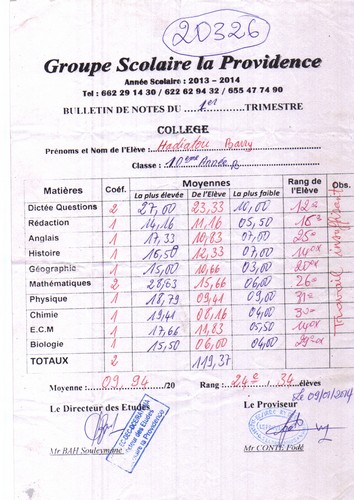 20326
Groupe Scolaire la Providence
Année Scolaire : 2013 – 2014
Tel : 662 29 14 30 / 622 62 94 32 / 655 47 74 90
BULLETIN DE NOTES DU 1er TRIMESTRE
COLLEGE
Prénoms et Nom de l'Elève : Hadiatou Barry
Classe : 10ème Année B
Matières Coéf. Moyennes Rang de l'Elève Obs.
La plus élevée De l'Elève La plus faible
Dictée Questions 2 27,00 23,33 10,00 12e
Rédaction 1 14,16 11,16 05,50 16e
Anglais 1 17,33 10,83 07,00 25e
Histoire 1 16,50 12,33 07,00 14ex
Géographie 1 15,00 10,66 03,00 20ex
Mathématiques 2 28,63 15,66 06,00 26e
Physique 1 18,79 09,41 09,00 31e
Chimie 1 19,41 08,16 04,00
E.C.M 1 17,66 11,83 05,50 14ex
Biologie 1 15,50 06,00 04,00 29ex
TOTAUX 2 119,37
Travail insuffisant
Moyenne : 09,94 /20 Rang : 24e / 34 élèves
Le 09/01/2014
Le Directeur des Etudes Le Proviseur
Mr BAH Souleymane Mr CONTE Fodé